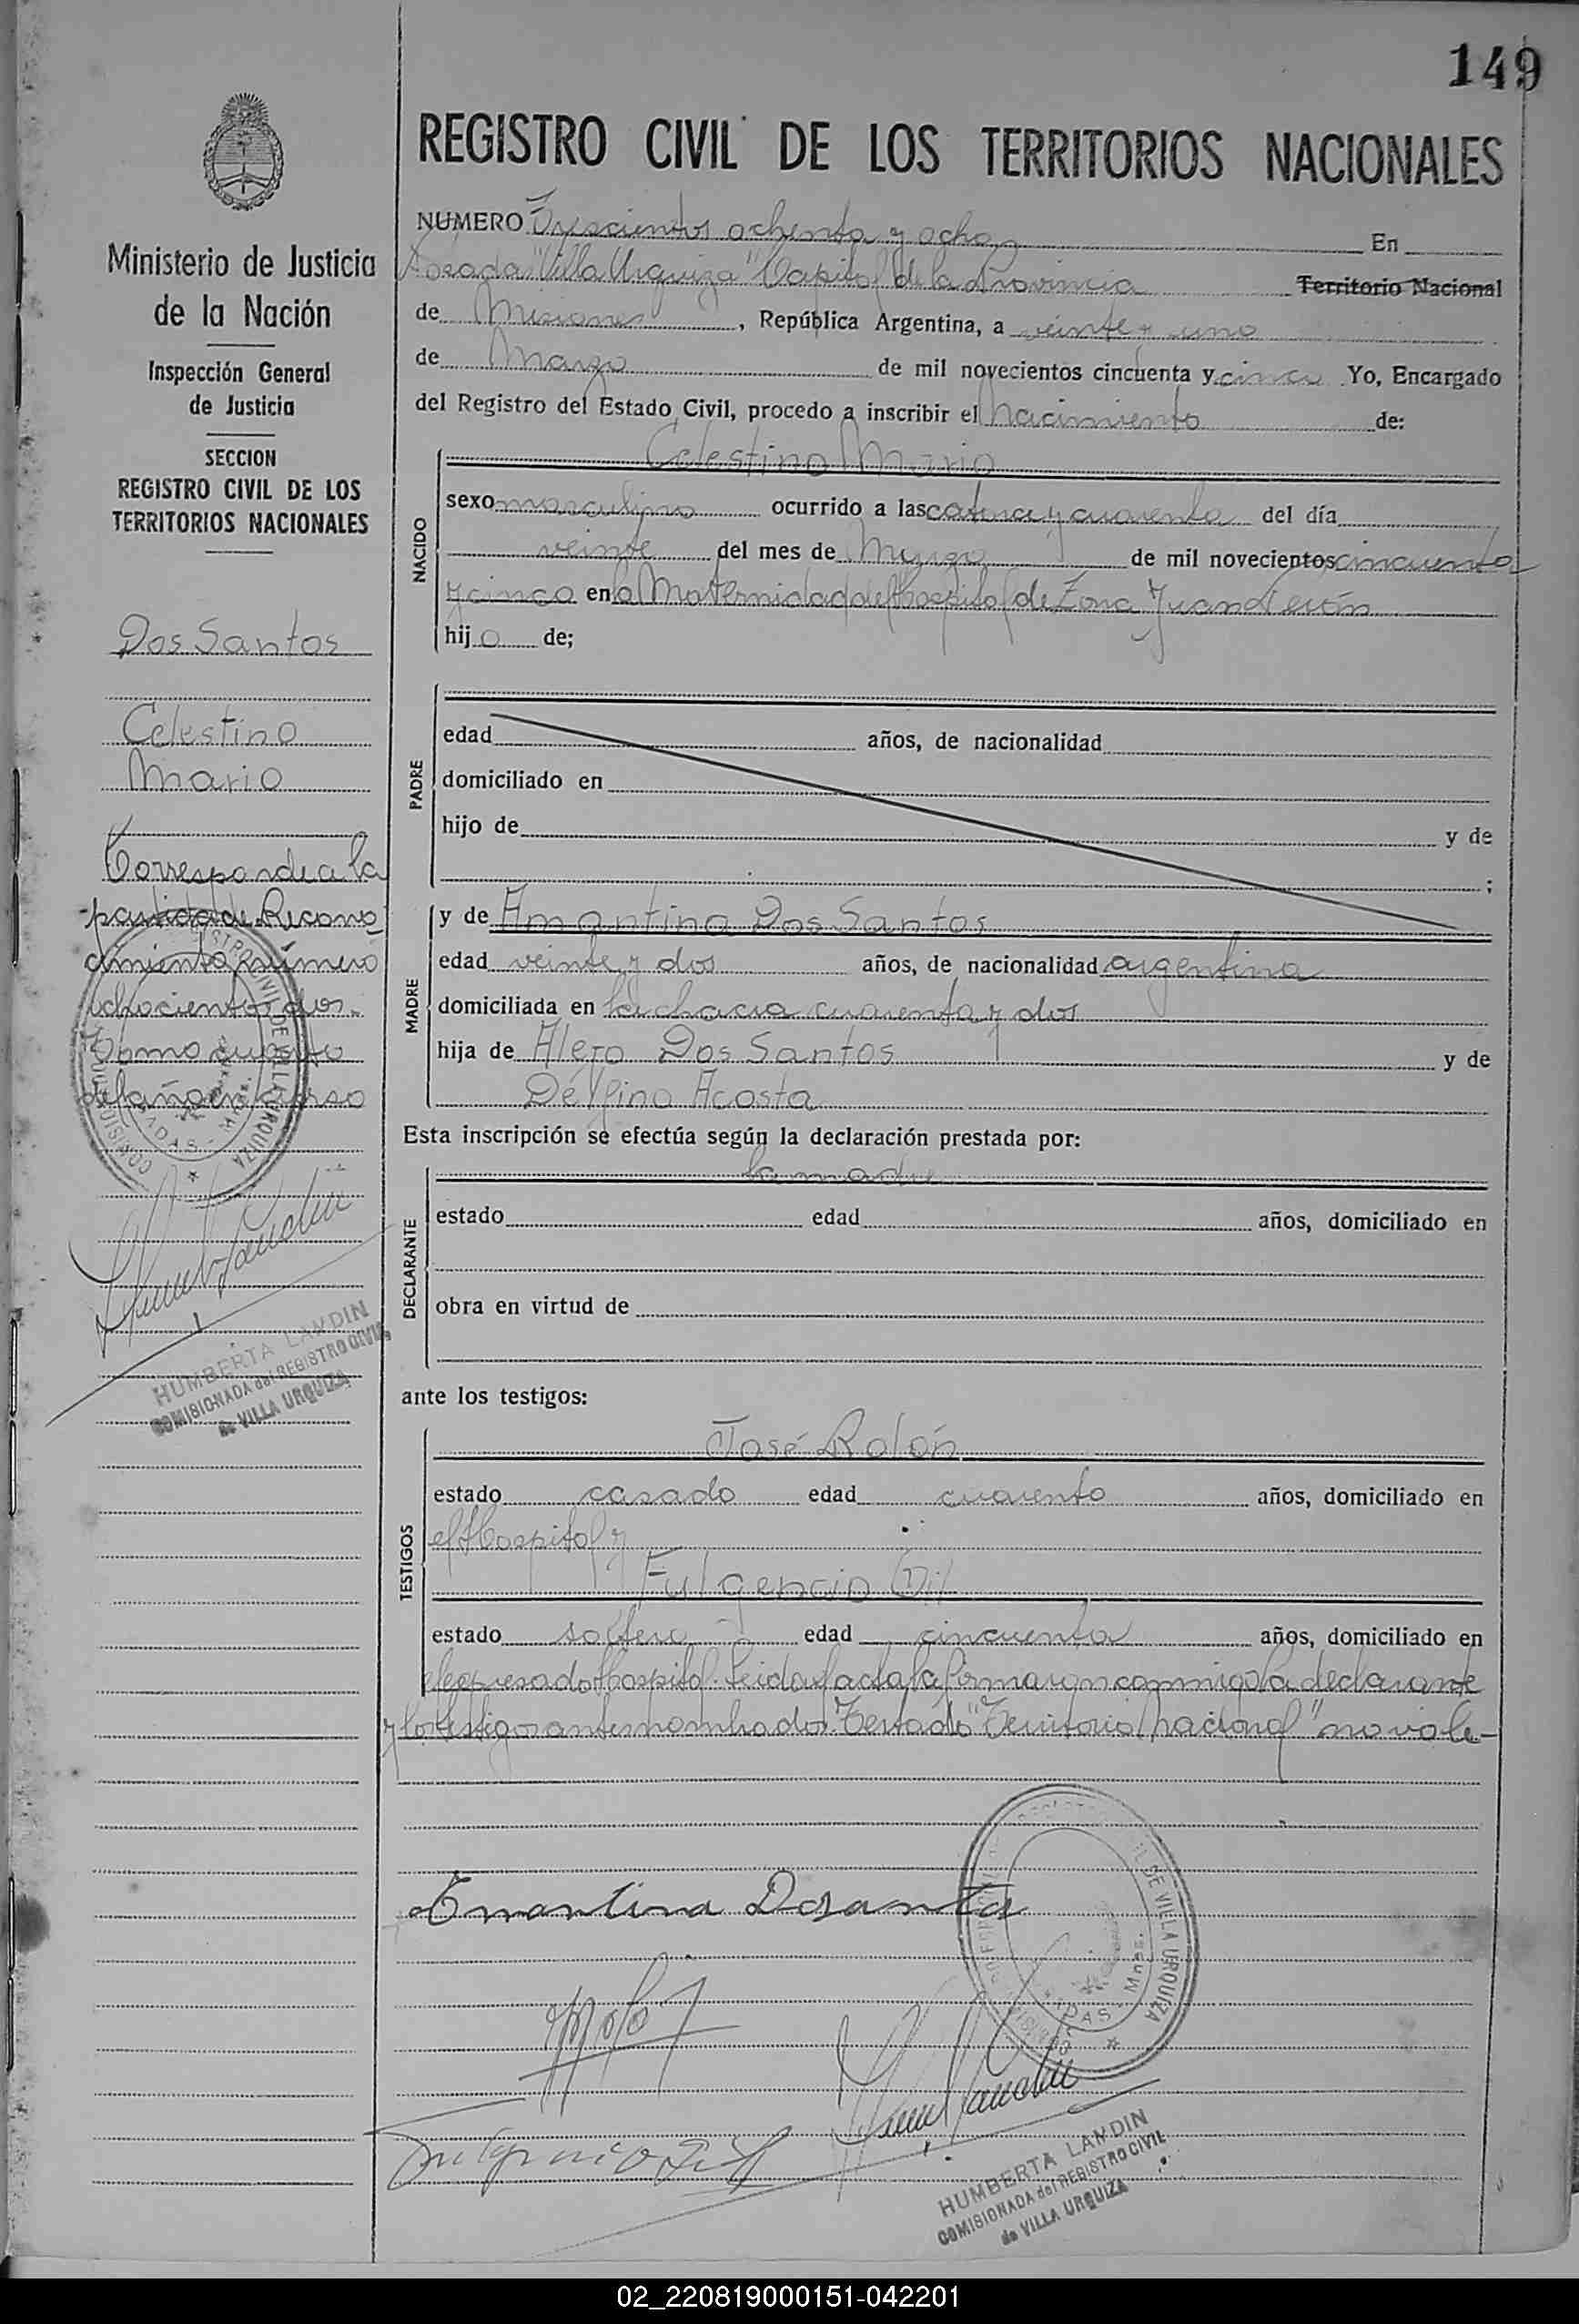 149
REGISTRO CIVIL DE LOS TERRITORIOS NACIONALES
NUMERO Trescientos ochenta y ocho En
Posadas "Villa Urquiza" Capital de la Provincia Territorio Nacional
de Misiones, República Argentina, a veinte y uno
de Marzo de mil novecientos cincuenta y cinco Yo, Encargado
del Registro del Estado Civil, procedo a inscribir el Nacimiento de:
Ministerio de Justicia
de la Nación
Inspección General
de Justicia
SECCION
REGISTRO CIVIL DE LOS
TERRITORIOS NACIONALES
Dos Santos
Celestino
Mario
Corresponde a la
partida de Recono
cimiento número
ochocientos dos.
Tomo cuarto
del año en curso
HUMBERTA LANDIN
COMISIONADA del REGISTRO CIVIL
de VILLA URQUIZA
NACIDO
Celestino Mario
sexo masculino ocurrido a las catorce y cuarenta del día
veinte del mes de Marzo de mil novecientos cincuenta
y cinco en la Maternidad del Hospital de Zona Juan Perón
hijo de;
PADRE
edad años, de nacionalidad
domiciliado en
hijo de y de
;
MADRE
y de Amantina Dos Santos
edad veinte y dos años, de nacionalidad argentina
domiciliada en la chacra cuarenta y dos
hija de Dos Santos y de
Delfina Acosta
Esta inscripción se efectúa según la declaración prestada por:
DECLARANTE
la madre
estado edad años, domiciliado en
obra en virtud de
ante los testigos:
TESTIGOS
José Rolón
estado casado edad cuarenta años, domiciliado en
el Hospital y
Fulgencio Gil
estado soltero edad cincuenta años, domiciliado en
el expresado Hospital. Leida el acta la firmaron conmigo la declarante
y los testigos antes nombrados. Testado "Territorio Nacional" no vale-
Emantina Dosantos
DE VILLA URQUIZA
HUMBERTA LANDIN
COMISIONADA del REGISTRO CIVIL
de VILLA URQUIZA
02_220819000151-042201